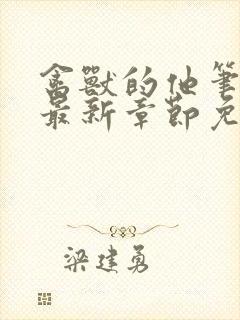 禽獸的他筆
最新章節免
梁建勇